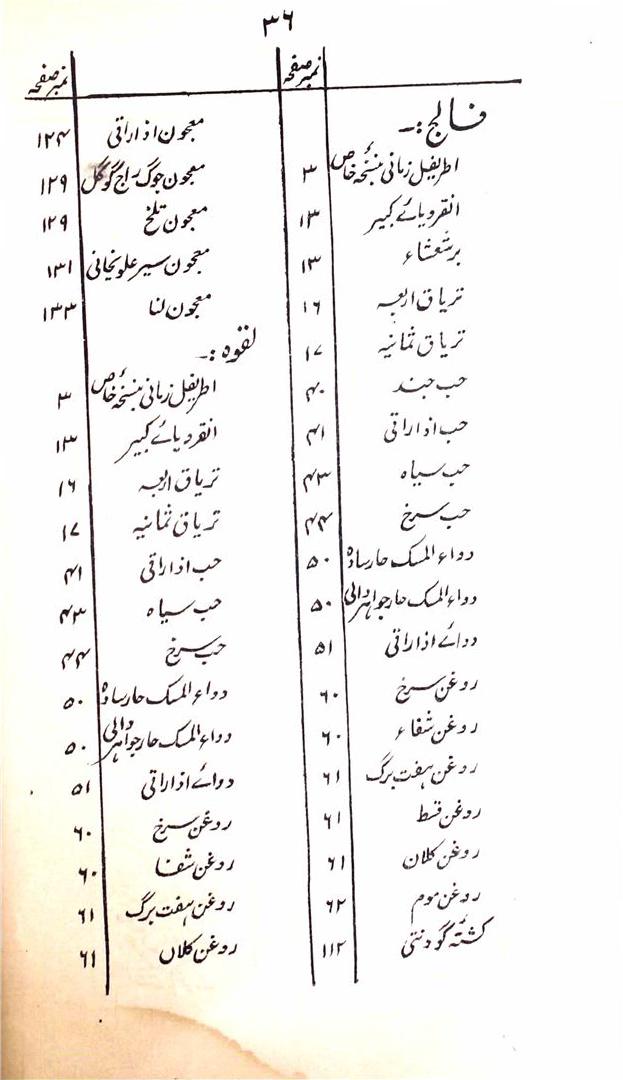 ۳۶
نمبر صفحہ
فالج :۔
اطریفل زمانی بنسخۂ خاص ۳
انقرویائے کبیر ۱۳
برشعشاء ۱۳
تریاق اربعہ ۱۶
تریاق ثمانیہ ۱۷
حب جند ۴۰
حب اذاراقی ۴۱
حب سیاہ ۴۳
حب سرخ ۴۴
دواء المسک حار سادہ ۵۰
دواء المسک حار جواہر والی ۵۰
دوائے اذاراقی ۵۱
روغن سرخ ۶۰
روغن شفاء ۶۰
روغن ہفت برگ ۶۱
روغن قسط ۶۱
روغن کلان ۶۱
روغن موم ۶۲
کشتۂ گودنتی ۱۱۲
نمبر صفحہ
معجون اذاراقی ۱۲۴
معجون جوگ راج گوگل ۱۲۹
معجون تلخ ۱۲۹
معجون سیر علوخانی ۱۳۱
معجون لنا ۱۳۳
لقوہ :۔
اطریفل زمانی بنسخۂ خاص ۳
انقرویائے کبیر ۱۳
تریاق اربعہ ۱۶
تریاق ثمانیہ ۱۷
حب اذاراقی ۴۱
حب سیاہ ۴۳
حب سرخ ۴۴
دواء المسک حار سادہ ۵۰
دواء المسک حار جواہر والی ۵۰
دوائے اذاراقی ۵۱
روغن سرخ ۶۰
روغن شفا ۶۰
روغن ہفت برگ ۶۱
روغن کلاں ۶۱